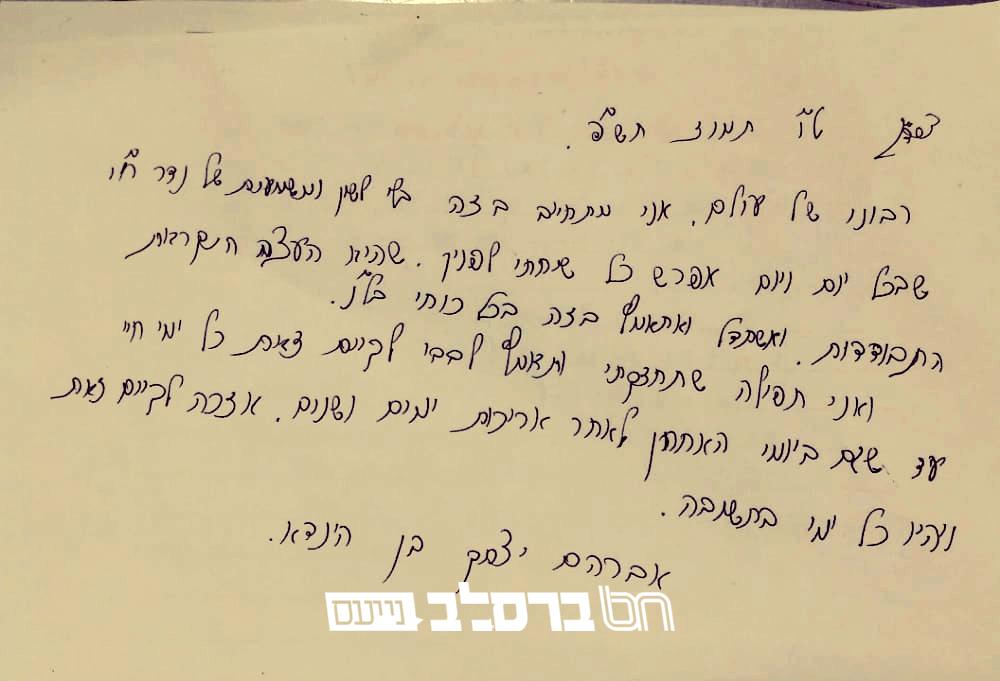 ט"ו תמוז תש"פ.
רבונו של עולם. אני מתחייב בזה בלי לשון ומשמעות של נדר ח"ו
שבכל יום ויום אפרש כל שיחתי לפניך. שהיא העצה הנקראת
התבודדות. ואשתדל ואתאמץ בזה בכל כוחי בל"נ.
ואני תפילה שתחזקני ותאמץ לבבי לקיים זאת כל ימי חיי
עד שגם ביומי האחרון לאחר אריכות ימים ושנים. אזכה לקיים זאת
ויהיו כל ימי בתשובה.
אברהם יצחק בן הינדא.
חדשות ברסלב נייעס